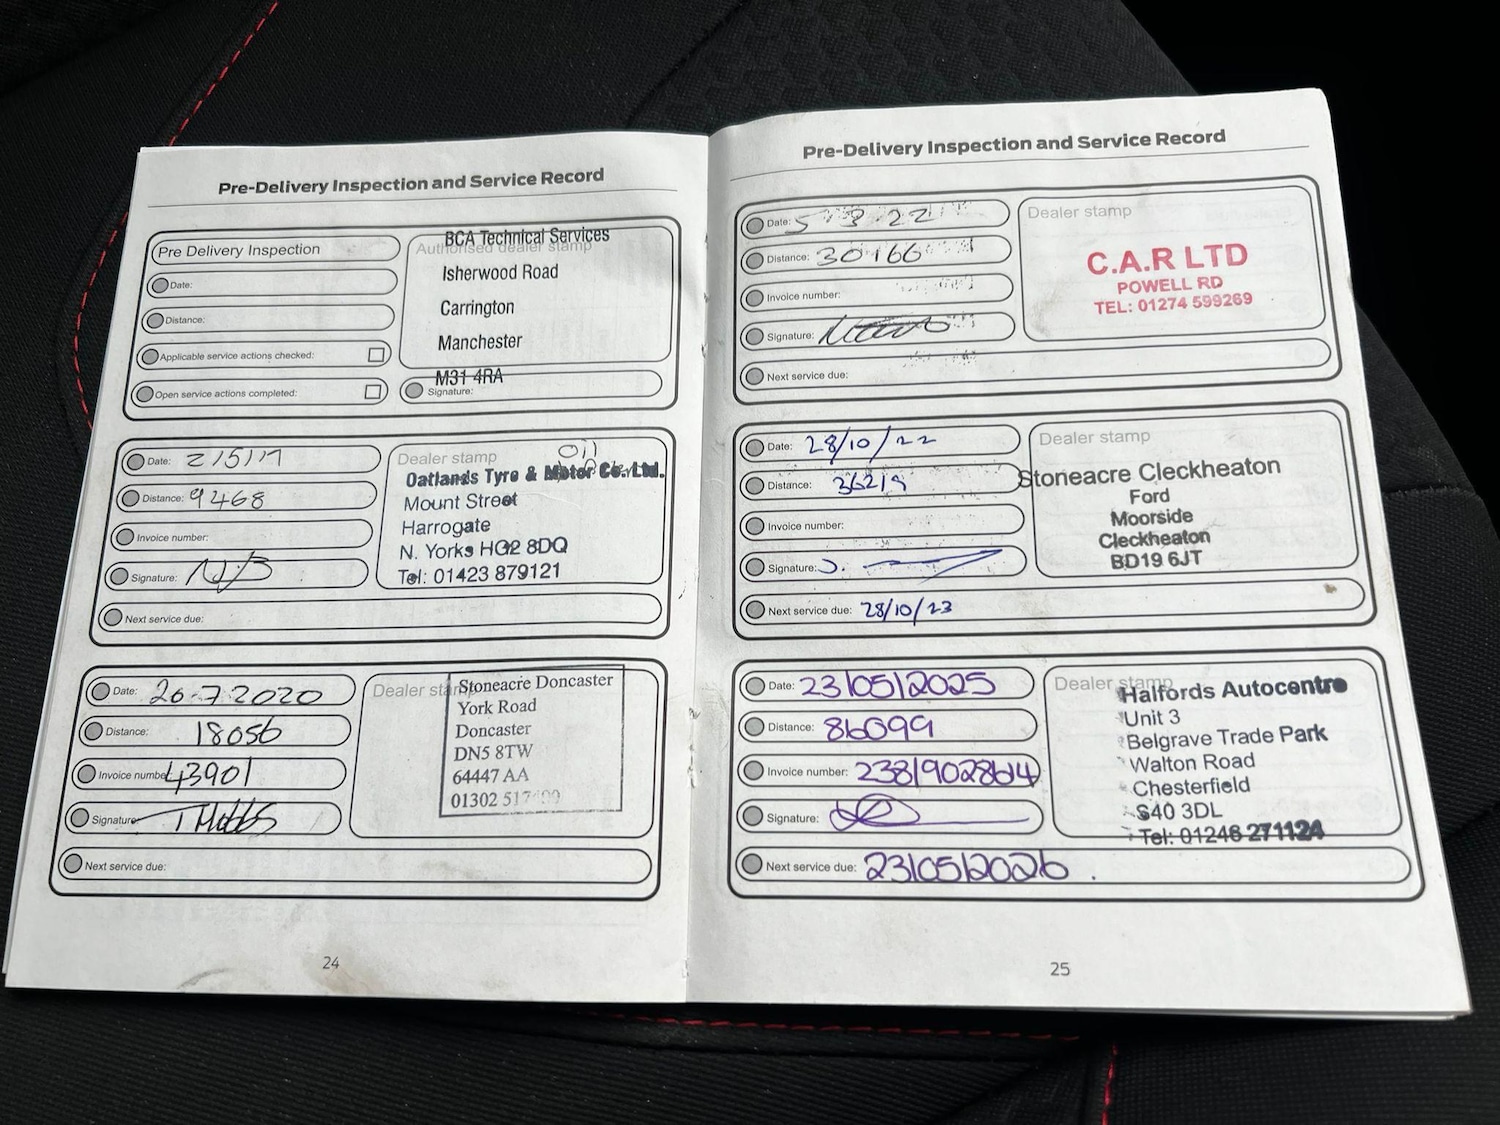 Pre-Delivery Inspection and Service Record
Pre Delivery Inspection
Date:
Distance:
Applicable service actions checked:
Open service actions completed:
Authorised dealer stamp
BCA Technical Services
Isherwood Road
Carrington
Manchester
M31 4RA
Signature:
Date: 2/5/19
Distance: 9468
Invoice number:
Signature:
Next service due:
Dealer stamp
Oil
Oatlands Tyre & Motor Co. Ltd.
Mount Street
Harrogate
N. Yorks HG2 8DQ
Tel: 01423 879121
Date: 20-7-2020
Distance: 18056
Invoice number 43901
Signature:
Next service due:
Dealer stamp
Stoneacre Doncaster
York Road
Doncaster
DN5 8TW
64447 AA
01302
24
Pre-Delivery Inspection and Service Record
Date: 5 3 22
Distance: 30166
Invoice number:
Signature:
Next service due:
Dealer stamp
C.A.R LTD
POWELL RD
TEL: 01274 599269
Date: 28/10/22
Distance: 36219
Invoice number:
Signature:
Next service due: 28/10/23
Dealer stamp
Stoneacre Cleckheaton
Ford
Moorside
Cleckheaton
BD19 6JT
Date: 23/05/2025
Distance: 86099
Invoice number: 2381902864
Signature:
Next service due: 23/05/2026.
Dealer stamp
Halfords Autocentre
Unit 3
Belgrave Trade Park
Walton Road
Chesterfield
S40 3DL
Tel: 01246 271124
25